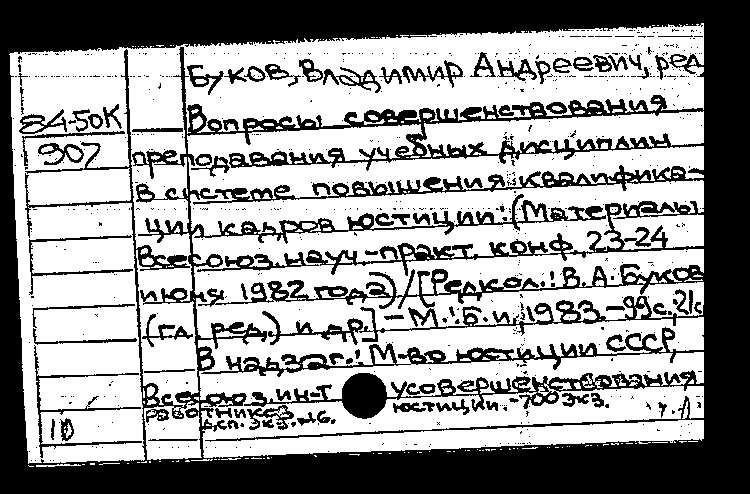 Буков, Владимир Андреевич, ред.
84-50К
Вопросы совершенствования
907
преподавания учебных дисциплин
в системе повышения квалифика-
ции кадров юстиции: (Материалы
Всесоюз. науч.-практ. конф., 23-24
июня 1982 года)/[Редкол.: В.А. Буков
(гл. ред.) и др.].-М.: Б.и., 1983.-99с.; 21с
В надзаг.: М-во юстиции СССР,
Всесоюз. ин-т усовершенствования
работников юстиции.-700 экз.
Д.сп. экз. №6.
10